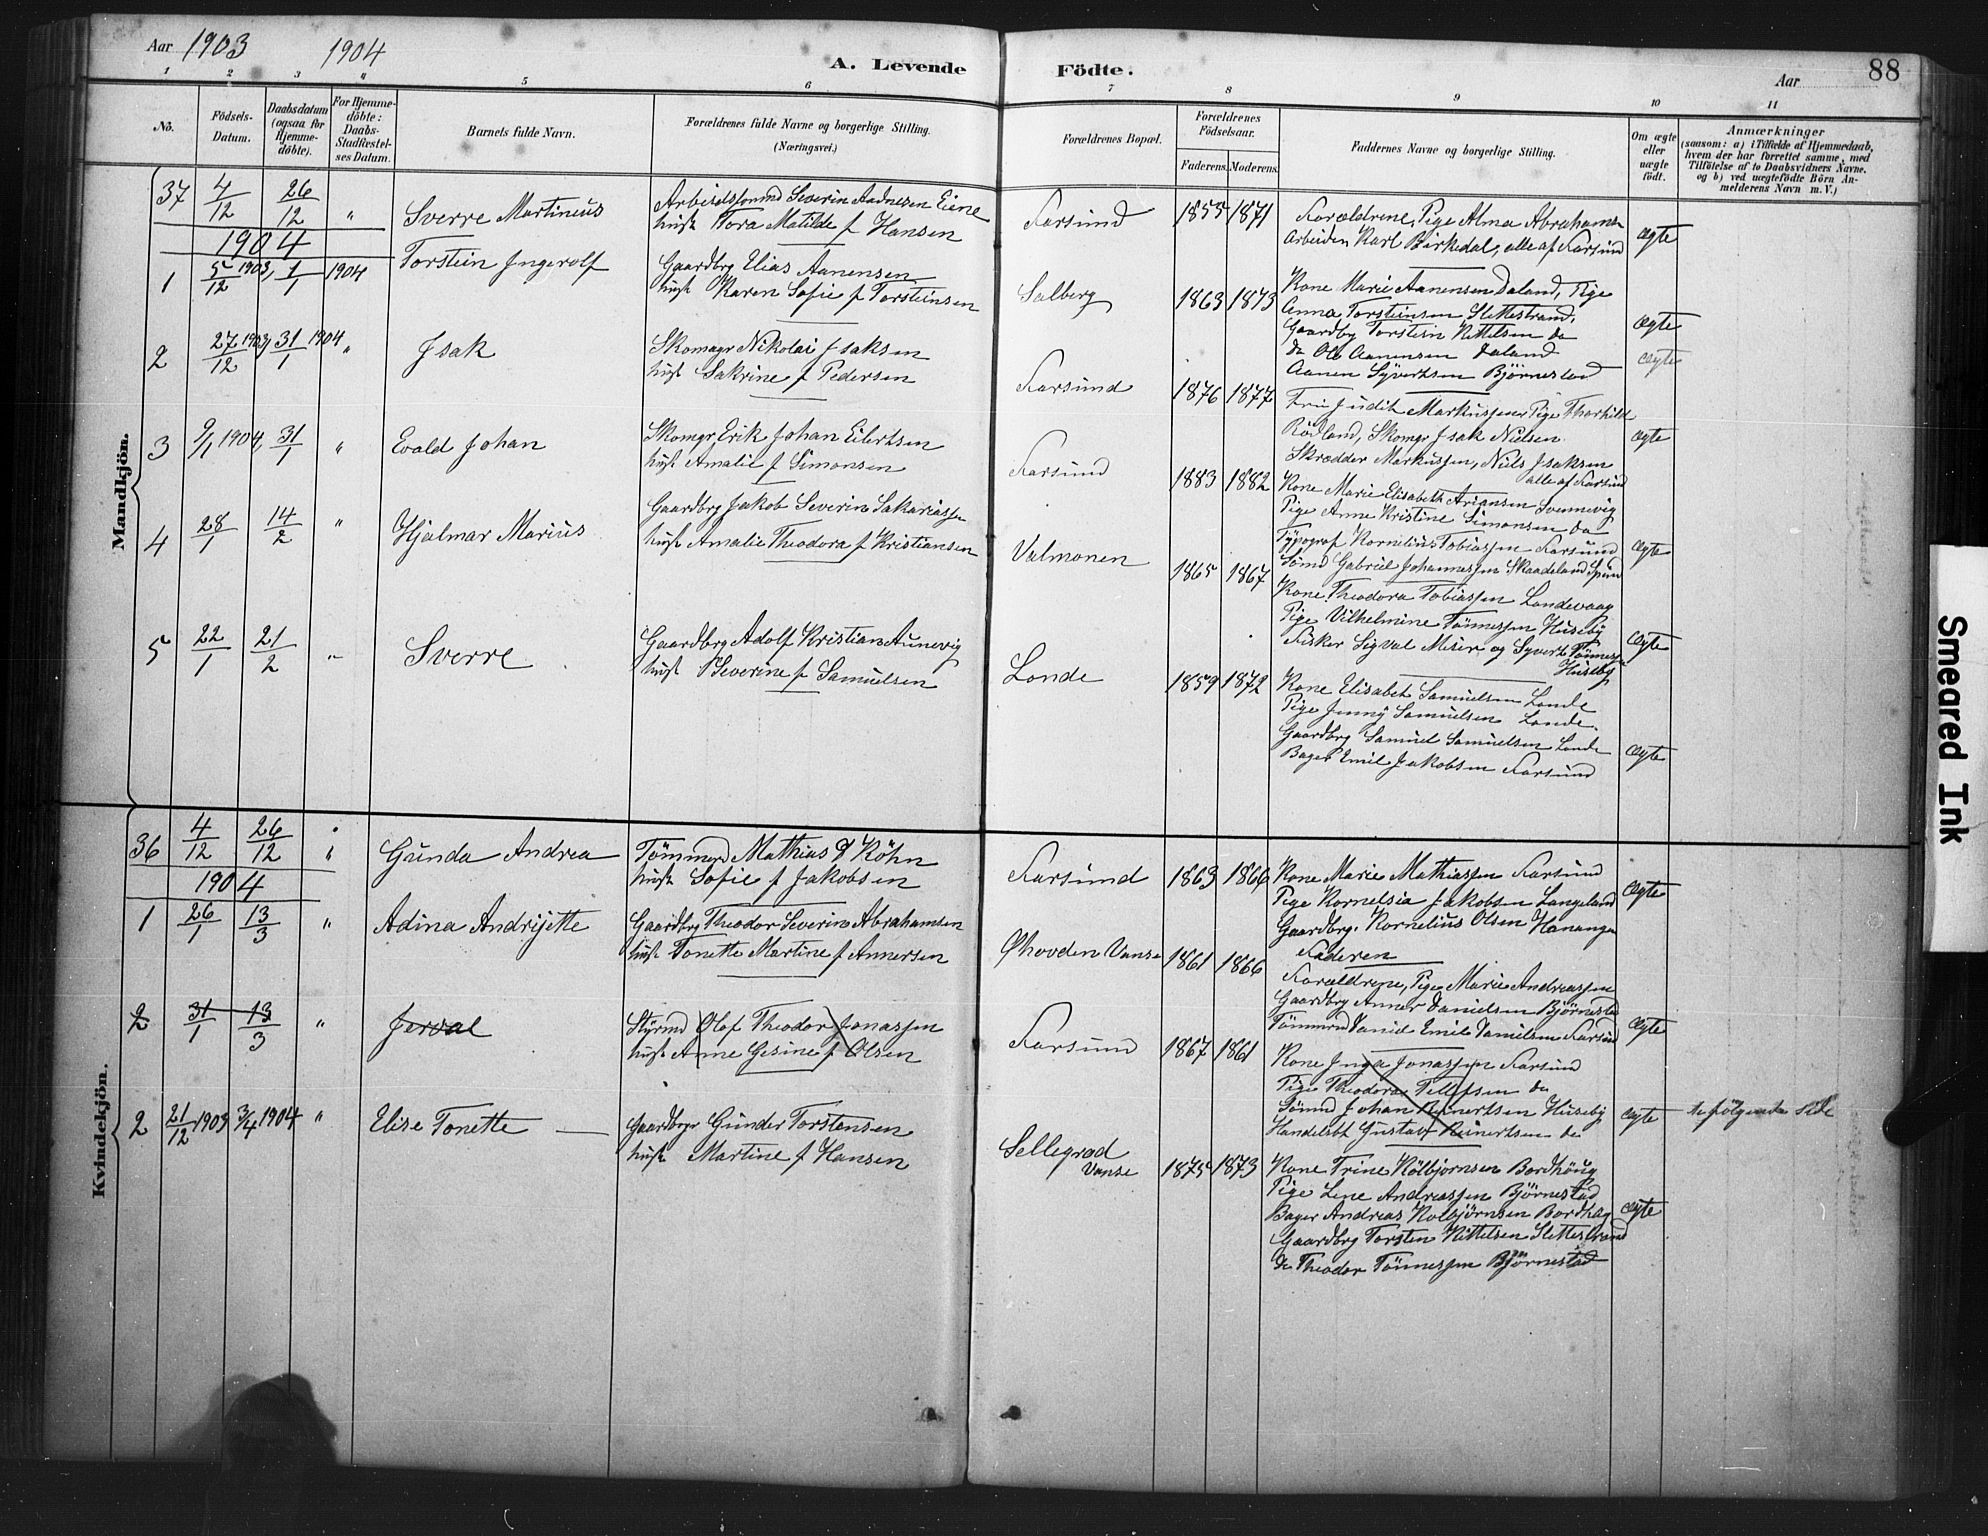 Aar 1903 1904
A. Levende Födte.
Aar 88
1 2 3 4 5 6 7 8 9 10 11
No. Födsels-Datum. Daabsdatum (ogsaa for Hjemme-döbte). For Hjemme-döbte: Daabs-Stadfæstel-ses Datum. Barnets fulde Navn. Forældrenes fulde Navne og borgerlige Stilling. (Næringsvei.) Forældrenes Bopæl. Forældrenes Födselsaar. Faderens. Moderens. Faddernes Navne og borgerlige Stilling. Om ægte eller uægte födt. Anmærkninger (saasom: a) i Tilfælde af Hjemmedaab, hvem der har forrettet samme, med Tilföielse af to Daabsvidners Navne. og b) ved uægtefödte Börn An-melderens Navn m. V.)
Mandkjön.
37 4/12 26/12 " Sverre Martinius
Arbeidsformd Severin Aadnesen Eiene
hust Tora Matilde f Hansen
Farsund 1855 1871
Forældrene, Pige Alma Abrahamsen
Arbeider Karl Birkedal, alle af Farsund
ægte
1904
1 5/12 1903, 1/1 1904 Torstein Ingerolf
Gaardbrg Elias Aanensen
hust Karen Sofie f Torsteinsen
Salberg 1863 1873
Kone Marie Aanensen Daland, Pige
Anna Torsteinsen Slettestrand,
Gaardbg Torstein Kittelsen do
do Ole Aanensen Daland
Aanen Syvertsen Björnestad
ægte
ægte
2 27/12 1903, 31/1 1904 " Isak
Skomagr Nikolai Isaksen
hust Sakrine f Pedersen
Farsund 1876 1877
Fru Judit Markussen, Pige Thorhild
Rödland, Skomgr Isak Nielsen
Skrædder Markussen, Niels Isaksen
alle af Farsund
ægte
3 9/1 1904, 31/1 " Evald Johan
Skomgr Erik Johan Eilertsen
hust Amalie f Simonsen
Farsund 1883 1882
Kone Marie Elisabeth Ariansen Svennevig
Pige Anne Kristine Simonsen do
Typograf Kornelius Tobiassen Farsund
Sömd Gabriel Johannessen Skaadeland Spind
ægte
4 28/1 14/2 " Hjalmar Marius
Gaardbrg Jakob Severin Sakariassen
hust Amalie Theodora f Kristiansen
Valmonen 1865 1867
Kone Theodora Tobiassen Londevaag
Pige Vilhelmine Tönnessen Huseby
Fisker Sigval Meser og Syvert Tönnessen
Huseby
ægte
5 22/1 21/2 " Sverre
Gaardbrg Adolf Kristian Aunevig
hust Severine f Samuelsen
Londe 1859 1872
Kone Elisabet Samuelsen Londe
Pige Jenny Samuelsen Londe.
Gaardbrg Samuel Samuelsen Londe
Bager Emil Jakobsen Farsund
ægte
Kvindekjön.
36 4/12 26/12 " Gunda Andrea
Tömmerd Mathias Köhn
hust Sofie f Jakobsen
Farsund 1863 1866
Kone Marie Mathiassen Farsund
Pige Kornelsia Jakobsen Langeland
Gaardbrg. Kornelius Olsen Hananger
Faderen
ægte
1904
1 26/1 13/3 " Adina Andrijette
Gaardbrg Theodor Severin Abrahamsen
hust Tonette Martine f Annersen
Ohovden Vanse 1861 1866
Forældrene, Pige Marie Andreassen
Gaardbrg Anner Danielsen Björnestad
Tömmerd Daniel Emil Danielsen Farsund
ægte
2 31/1 13/3 " Jerdal
Styrmd Olaf Theodor Jonassen
hust Anne Gesine f Olsen
Farsund 1867 1861
Kone Inga Jonassen Farsund
Pige Theodora Tellefsen do
Sömd Johan Reinertsen Huseby
Handelsbt Gustav Reinertsen do
ægte se följende side
2 21/12 1903 3/4 1904 " Elise Tonette
Gaardbrgr Gunder Torstensen
hust Martine f Hansen
Sellegrod
Vanse 1875 1873
Kone Trine Kolbjornsen Bordhöug
Pige Lene Andreassen Björnestad
Bager Andreas Kolbjörnsen Bordhag
Gaardbrg Torsten Kittelsen Slettestrand
do Theodor Tönnessen Björnestad
ægte
Smeared Ink